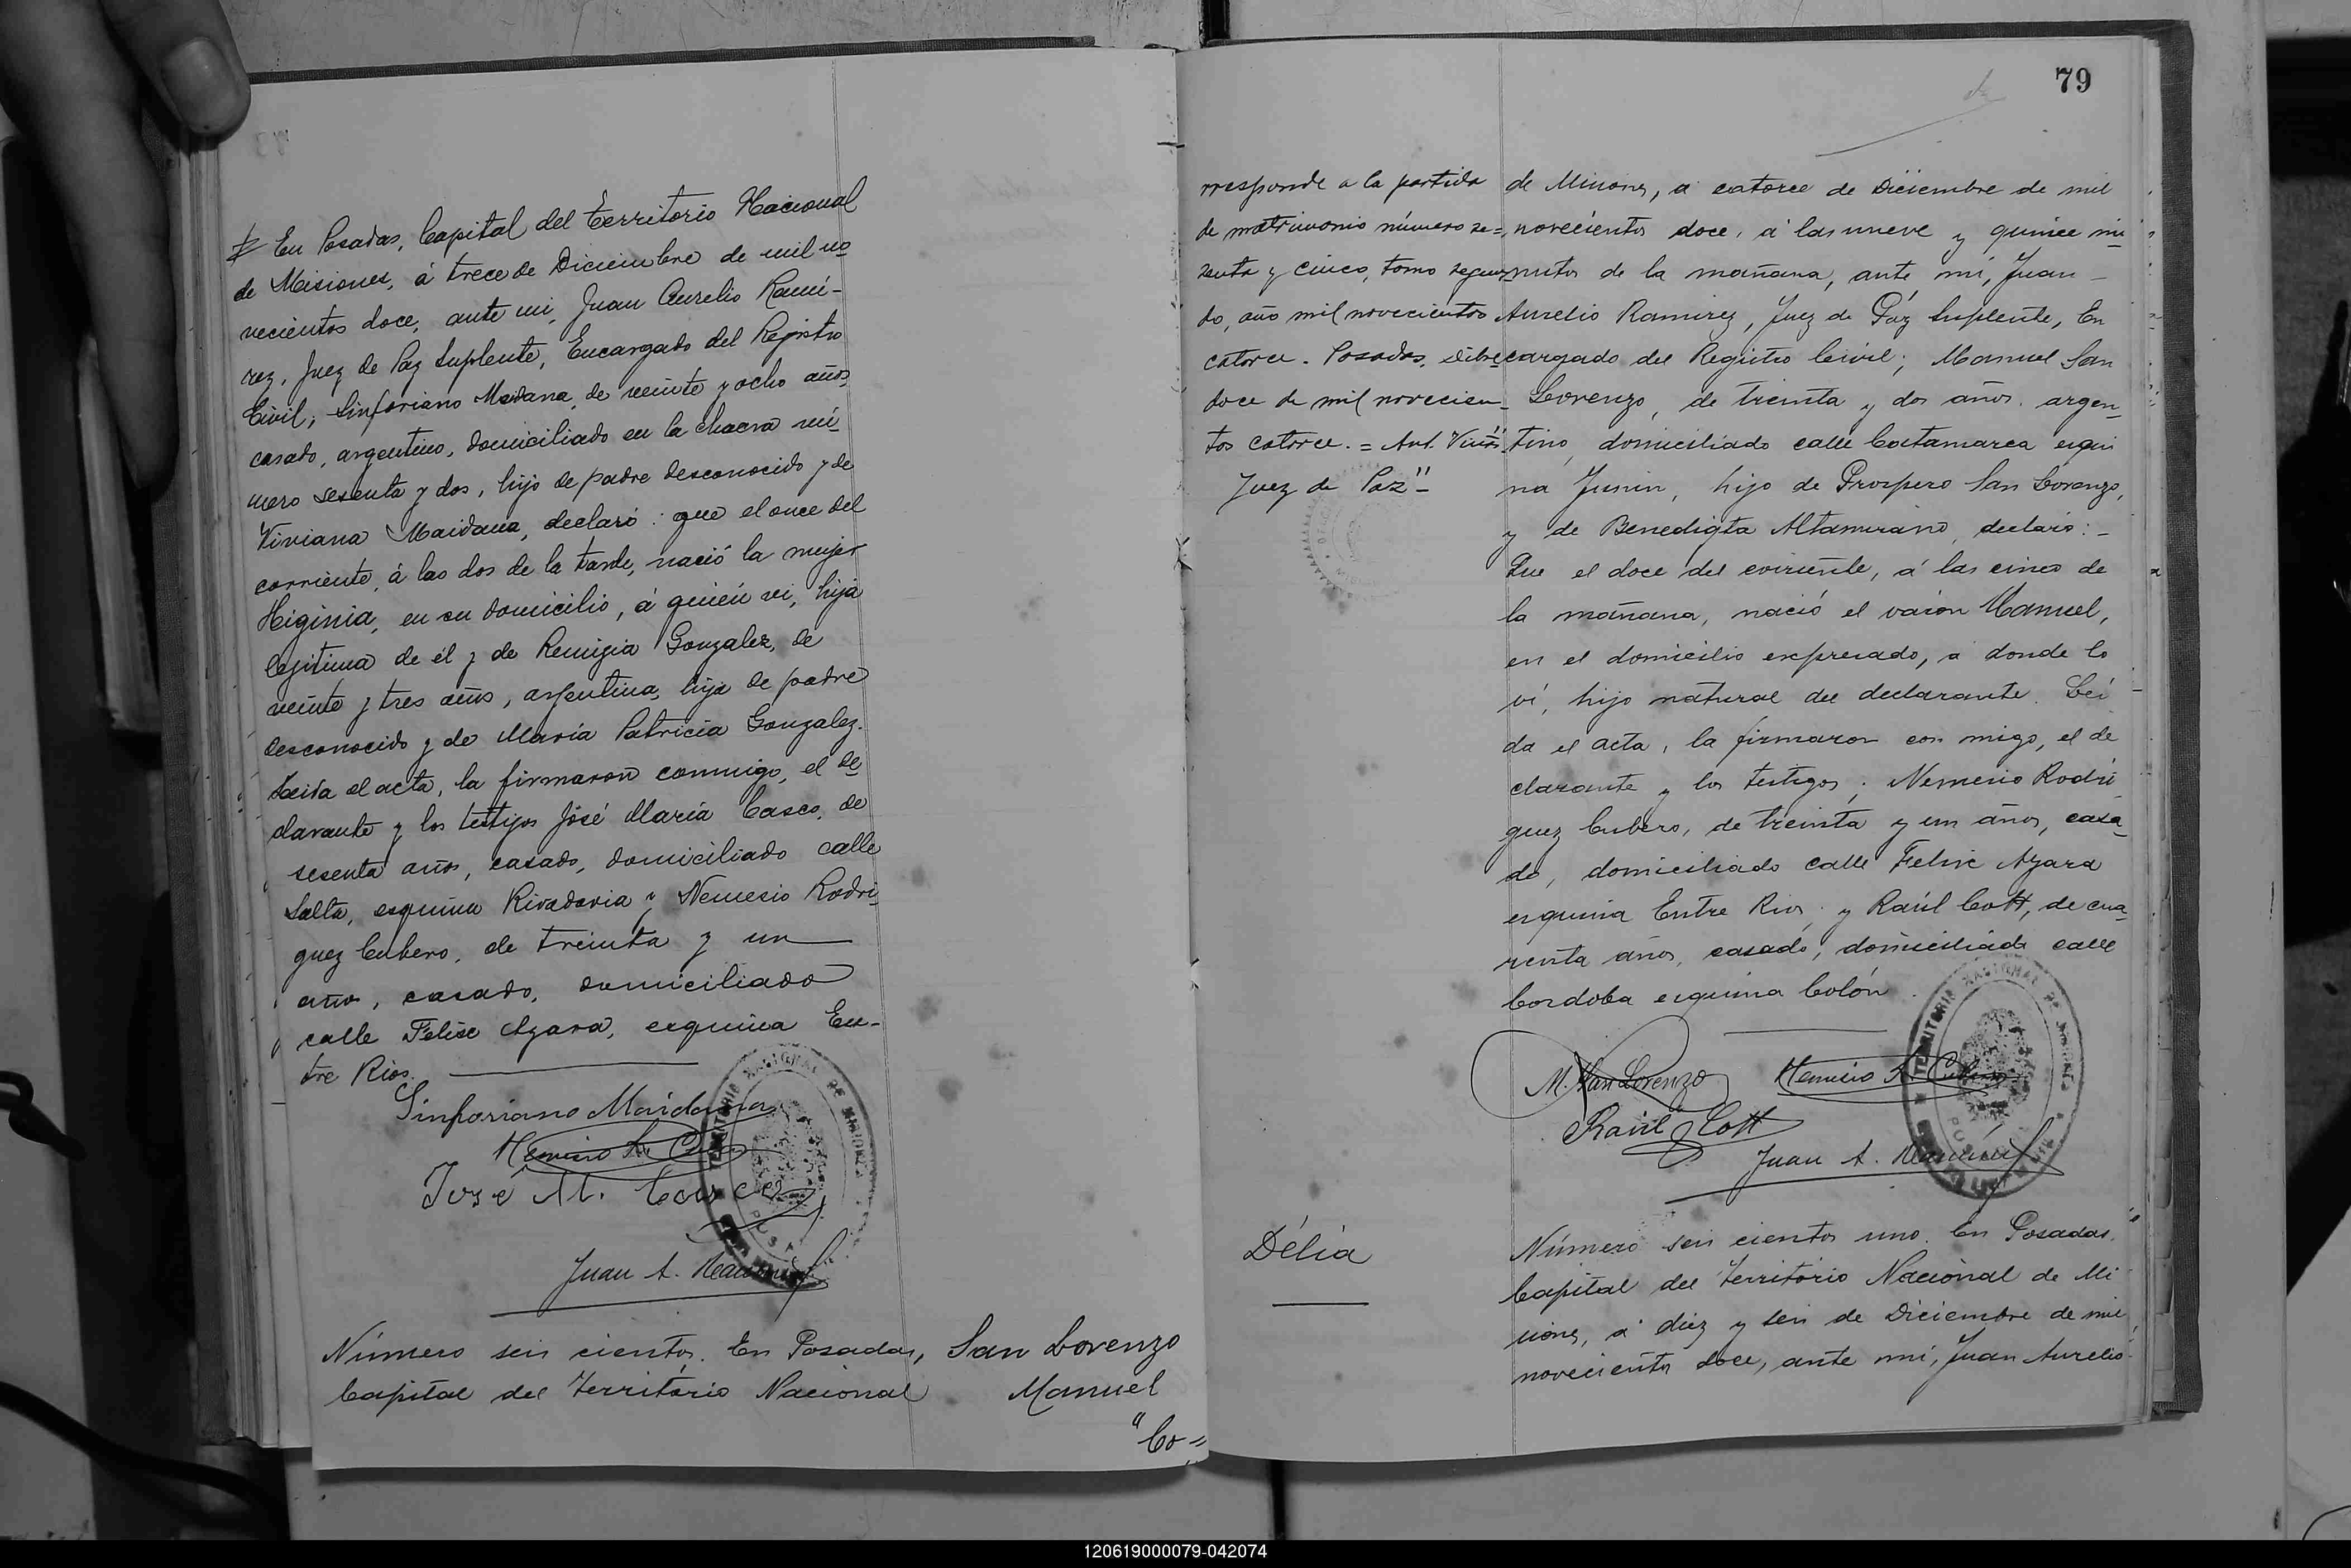 En Posadas, Capital del Territorio Nacional
de Misiones, á trece de Diciembre de mil no
vecientos doce, ante mi, Juan Aurelio Rami-
rez, Juez de Paz Suplente, Encargado del Registro
Civil; Sinforiano Maidana, de veinte y ocho años,
casado, argentino, domiciliado en la chacra nú
mero sesenta y dos, hijo de padre desconocido y de
Viviana Maidana, declaró: que el once del
corriente, á las dos de la tarde, nació la mujer
Higinia, en su domicilio, á quién vi, hija
legitima de él y de Remigia Gonzalez, de
veinte y tres años, argentina, hija de padre
desconocido y de María Patricia Gonzalez.
Leida el acta, la firmaron conmigo, el de
clarante y los testigos José María Casco, de
sesenta años, casado, domiciliado calle
Salta, esquina Rivadavia y Nemesio Rodri
guez Cubero, de treinta y un
años, casado, domiciliado
calle Felise Azara, esquina En-
tre Rios.
Sinforiano Maidana
Nemesio R. Cubero
José M. Casco
Juan A. Ramírez
TERRITORIO NACIONAL DE MISIONES
Número seis cientos. En Posadas,
Capital del Territorio Nacional
San Lorenzo
Manuel
"Co=
79
rresponde a la partida
de matrimonio número se=
senta y cinco, tomo segun
do, año mil novecientos
catorce. Posadas, dibre
doce de mil novecien
tos catorce. = Ant.
Juez de Paz"-
de Misiones, á catorce de Diciembre de mil
novecientos doce, á las nueve y quince mi
nutos de la mañana, ante mí, Juan
Aurelio Ramirez, Juez de Páz Suplente, En
cargado del Registro Civil; Manuel San
Lorenzo, de treinta y dos años, argen-
tino, domiciliado calle Catamarca esqui
na Junin, hijo de Prospero San Lorenzo,
y de Benedigta Altamirano, declaró:-
Que el doce del corriente, á las cinco de
la mañana, nació el varon Manuel,
en el domicilio expresado, a donde lo
ví, hijo natural del declarante. Leí
da el acta, la firmaron con migo, el de
clarante y los testigos; Nemesio Rodri
guez Cubero, de treinta y un años, casa
do, domiciliado calle Felise Azara
esquina Entre Rios, y Raúl Cott, de cua
renta años, casado, domiciliado calle
Cordoba esquina Colón.
M. San Lorenzo
Nemesio R. Cubero
Raúl Cott
Juan A. Ramírez
TERRITORIO NACIONAL DE MISIONES
Délia
Número seis cientos uno. En Posadas,
Capital del Territorio Nacional de Mi
siones, a diez y seis de Diciembre de mil
novecientos doce, ante mi, Juan Aurelio
120619000079-042074